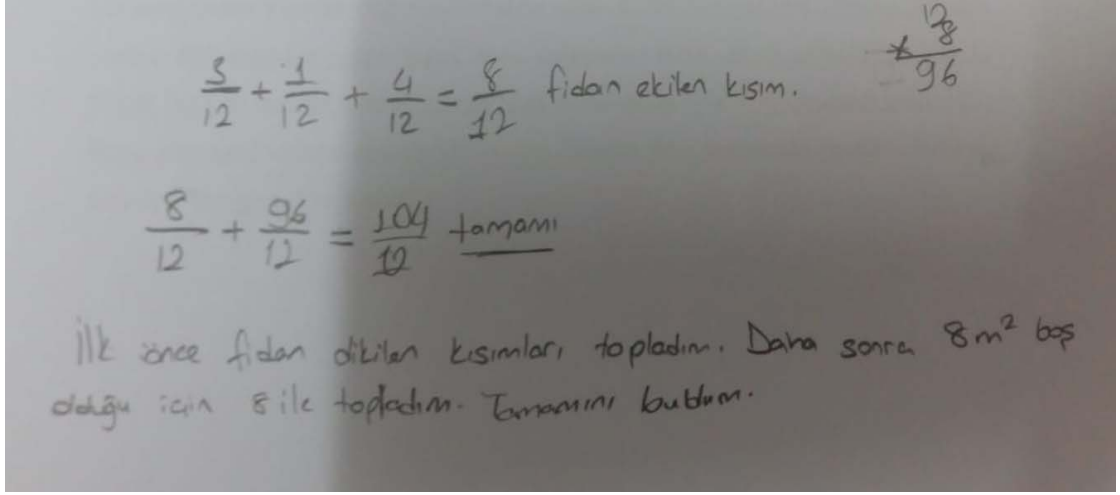 12
× 8
96
3/12 + 1/12 + 4/12 = 8/12 fidan ekilen kısım.
8/12 + 96/12 = 104/12 tamamı
İlk önce fidan dikilen kısımları topladım. Daha sonra 8m² boş
olduğu için 8 ile topladım. Tamamını buldum.